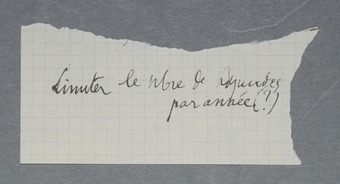 Limiter le nbre de
par année (?)